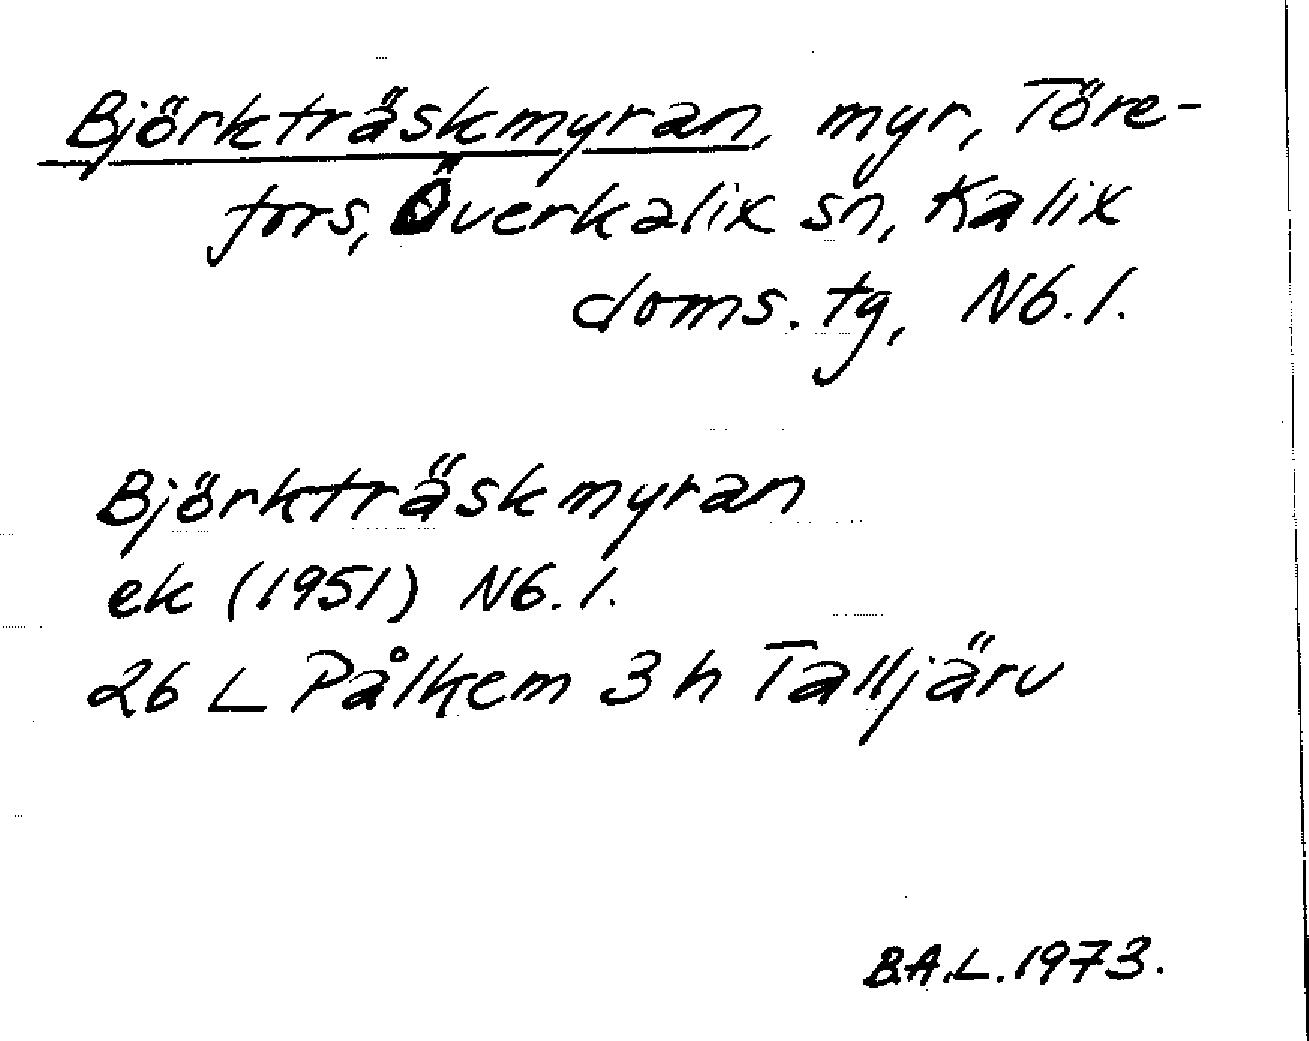 Björkträskmyran, myr, Töre-
fors, Överkalix sn, Kalix
doms. tg, Nb. l.
Björkträskmyran
ek (1951) Nb. l.
26 L Pålkem 3 h Talljärv
B.A.L. 1973.